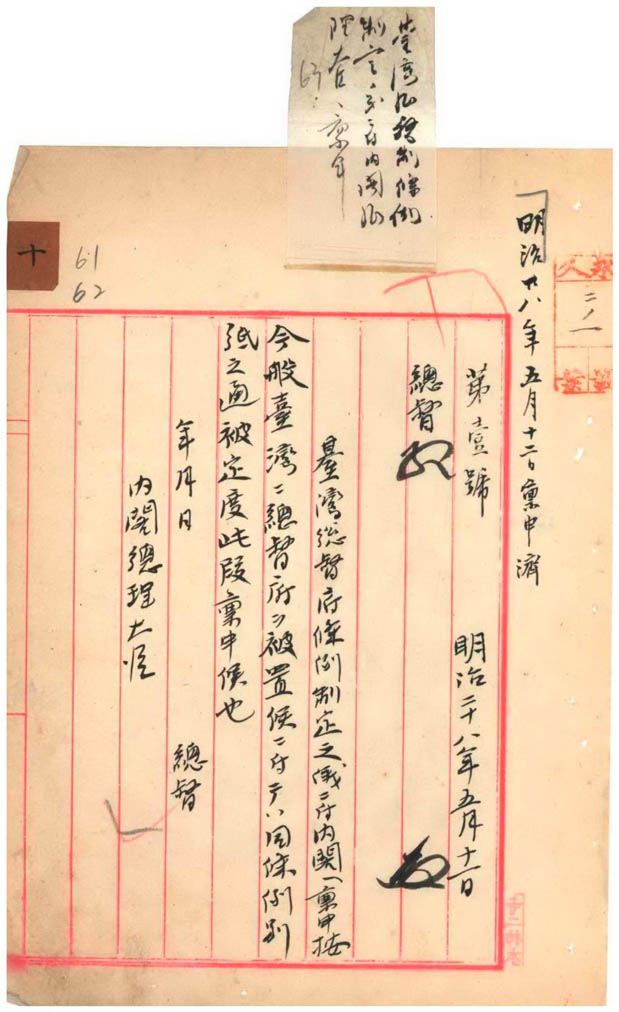 臺灣
制定
内閣
63
明治廿八年五月十二日稟申濟
永久
二ノ一
第壹號
明治二十八年五月十一日
總督
臺灣総督府條例制定之儀ニ付内閣ヘ稟申按
今般臺灣ニ總督府ヲ被置候ニ付テハ同條例別
紙之通被定度此段稟申候也
年月日
總督
内閣總理大臣
十
61
62